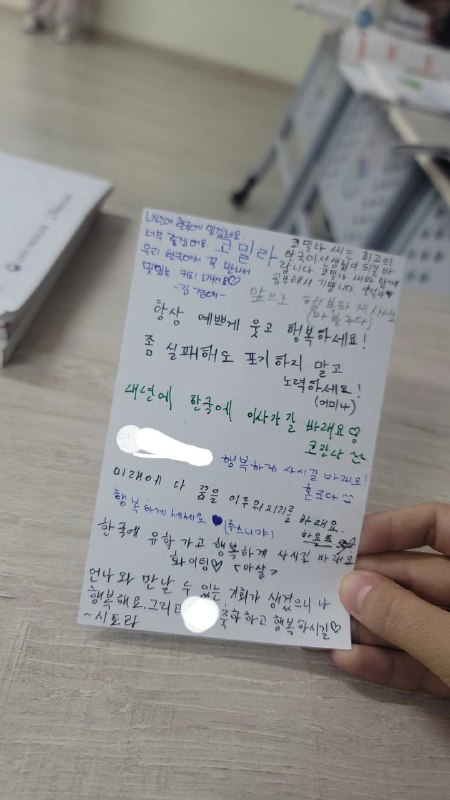 내년에 한국에 있겠네요.
너무 좋겠어요.
우리 한국에서 꼭 만나서
맛있는 커피 마셔요♡
코밀라
코밀라 씨는 최고의
한국어 선생님이 되길 바
랍니다. 코밀라 씨와 함께
공부해서 기쁩니다.
앞으로 행복하게 사세요
항상 예쁘게 웃고 행복하세요!
좀 실패해도 포기하지 말고
노력하세요!
내년에 한국에 이사가길 바래요♡
행복하게 사시길 바래요!
미래에 다 꿈을 이루워지기를 바래요.
행복하게 세세요
한국에 유학 가고 행복하게 사시길 바래요
화이팅♡ <아살>
언니와 만날 수 있는 기회가 생겼으니 나
행복해요. 그리고 축하하고 행복하시길♡
~시토라